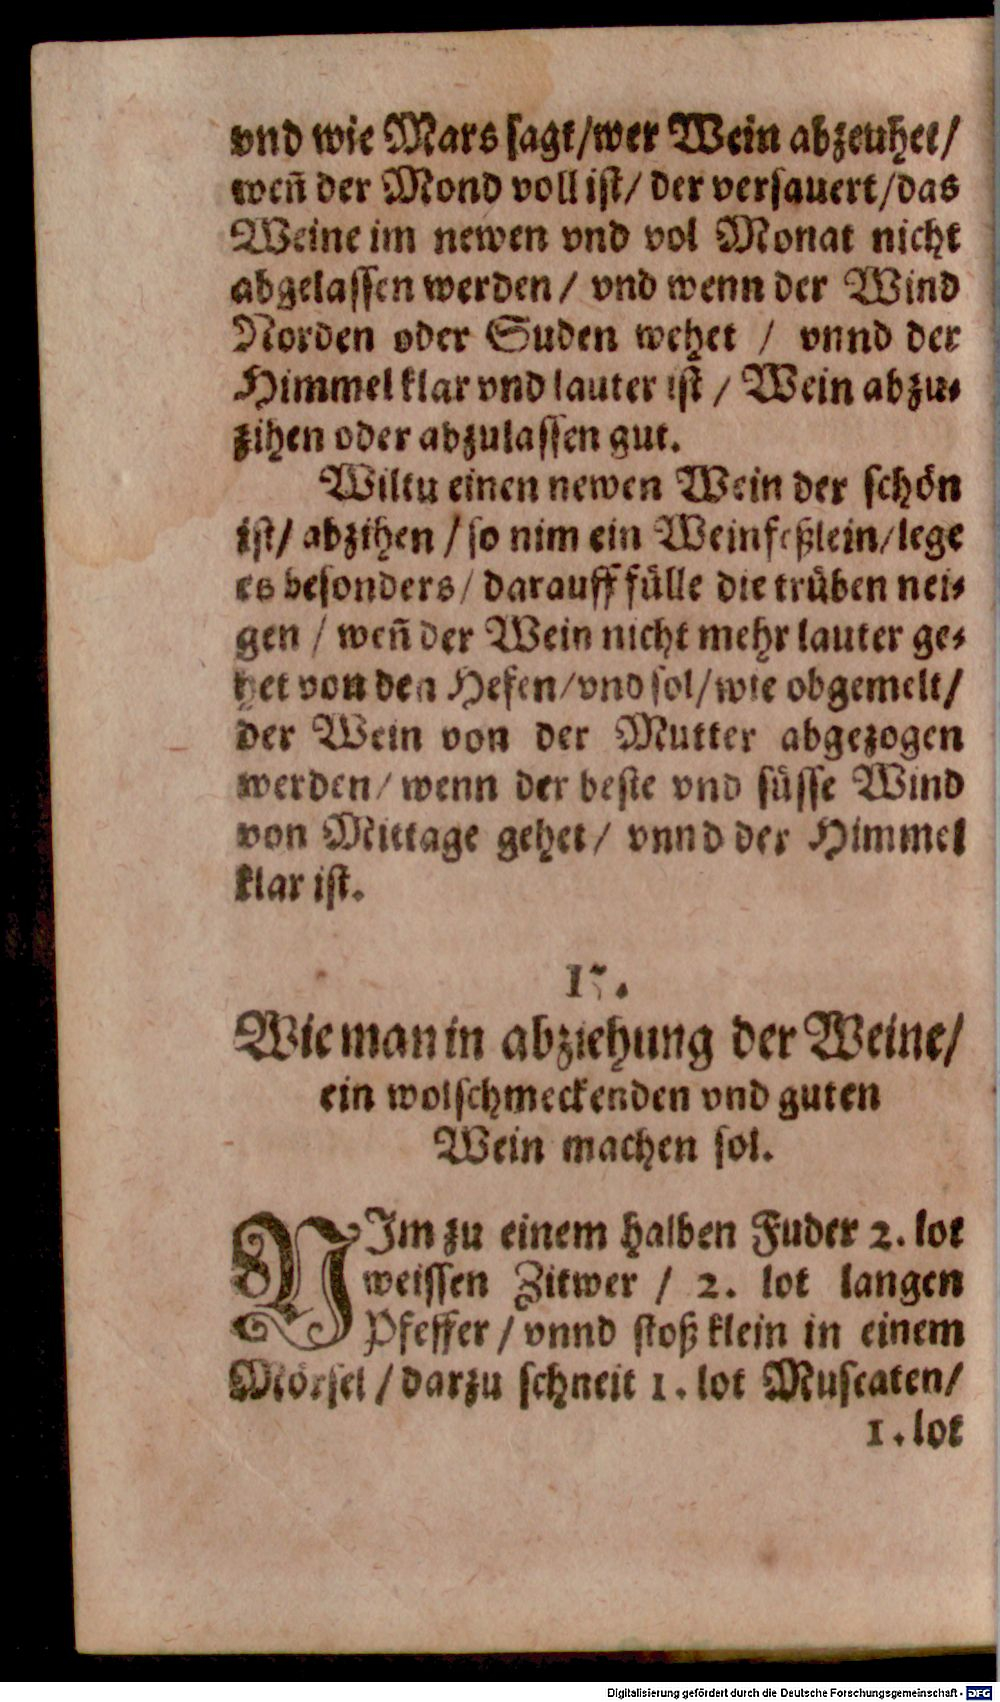 vnd wie Mars sagt/wer Wein abzeuhet/
weñ der Mond voll ist/ der versauert/das
Weine im newen vnd vol Monat nicht
abgelassen werden / vnd wenn der Wind
Norden oder Suden wehet / vnnd der
Himmel klar vnd lauter ist / Wein abzu-
zihen oder abzulassen gut.
Wiltu einen newen Wein der schön
ist/ abzihen / so nim ein Weinfeßlein/lege
es besonders/ darauff fülle die trüben nei-
gen / weñ der Wein nicht mehr lauter ge-
het von den Hefen/vnd sol/wie obgemelt/
der Wein von der Mutter abgezogen
werden/ wenn der beste vnd süsse Wind
von Mittage gehet/ vnnd der Himmel
klar ist.
Wie man in abziehung der Weine/
ein wolschmeckenden vnd guten
Wein machen sol.
NIm zu einem halben Fuder 2. lot
weissen Zitwer / 2. lot langen
Pfeffer / vnnd stoß klein in einem
Mörsel / darzu schneit 1. lot Muscaten/
1. lot
Digitalisierung gefördert durch die Deutsche Forschungsgemeinschaft - DFG